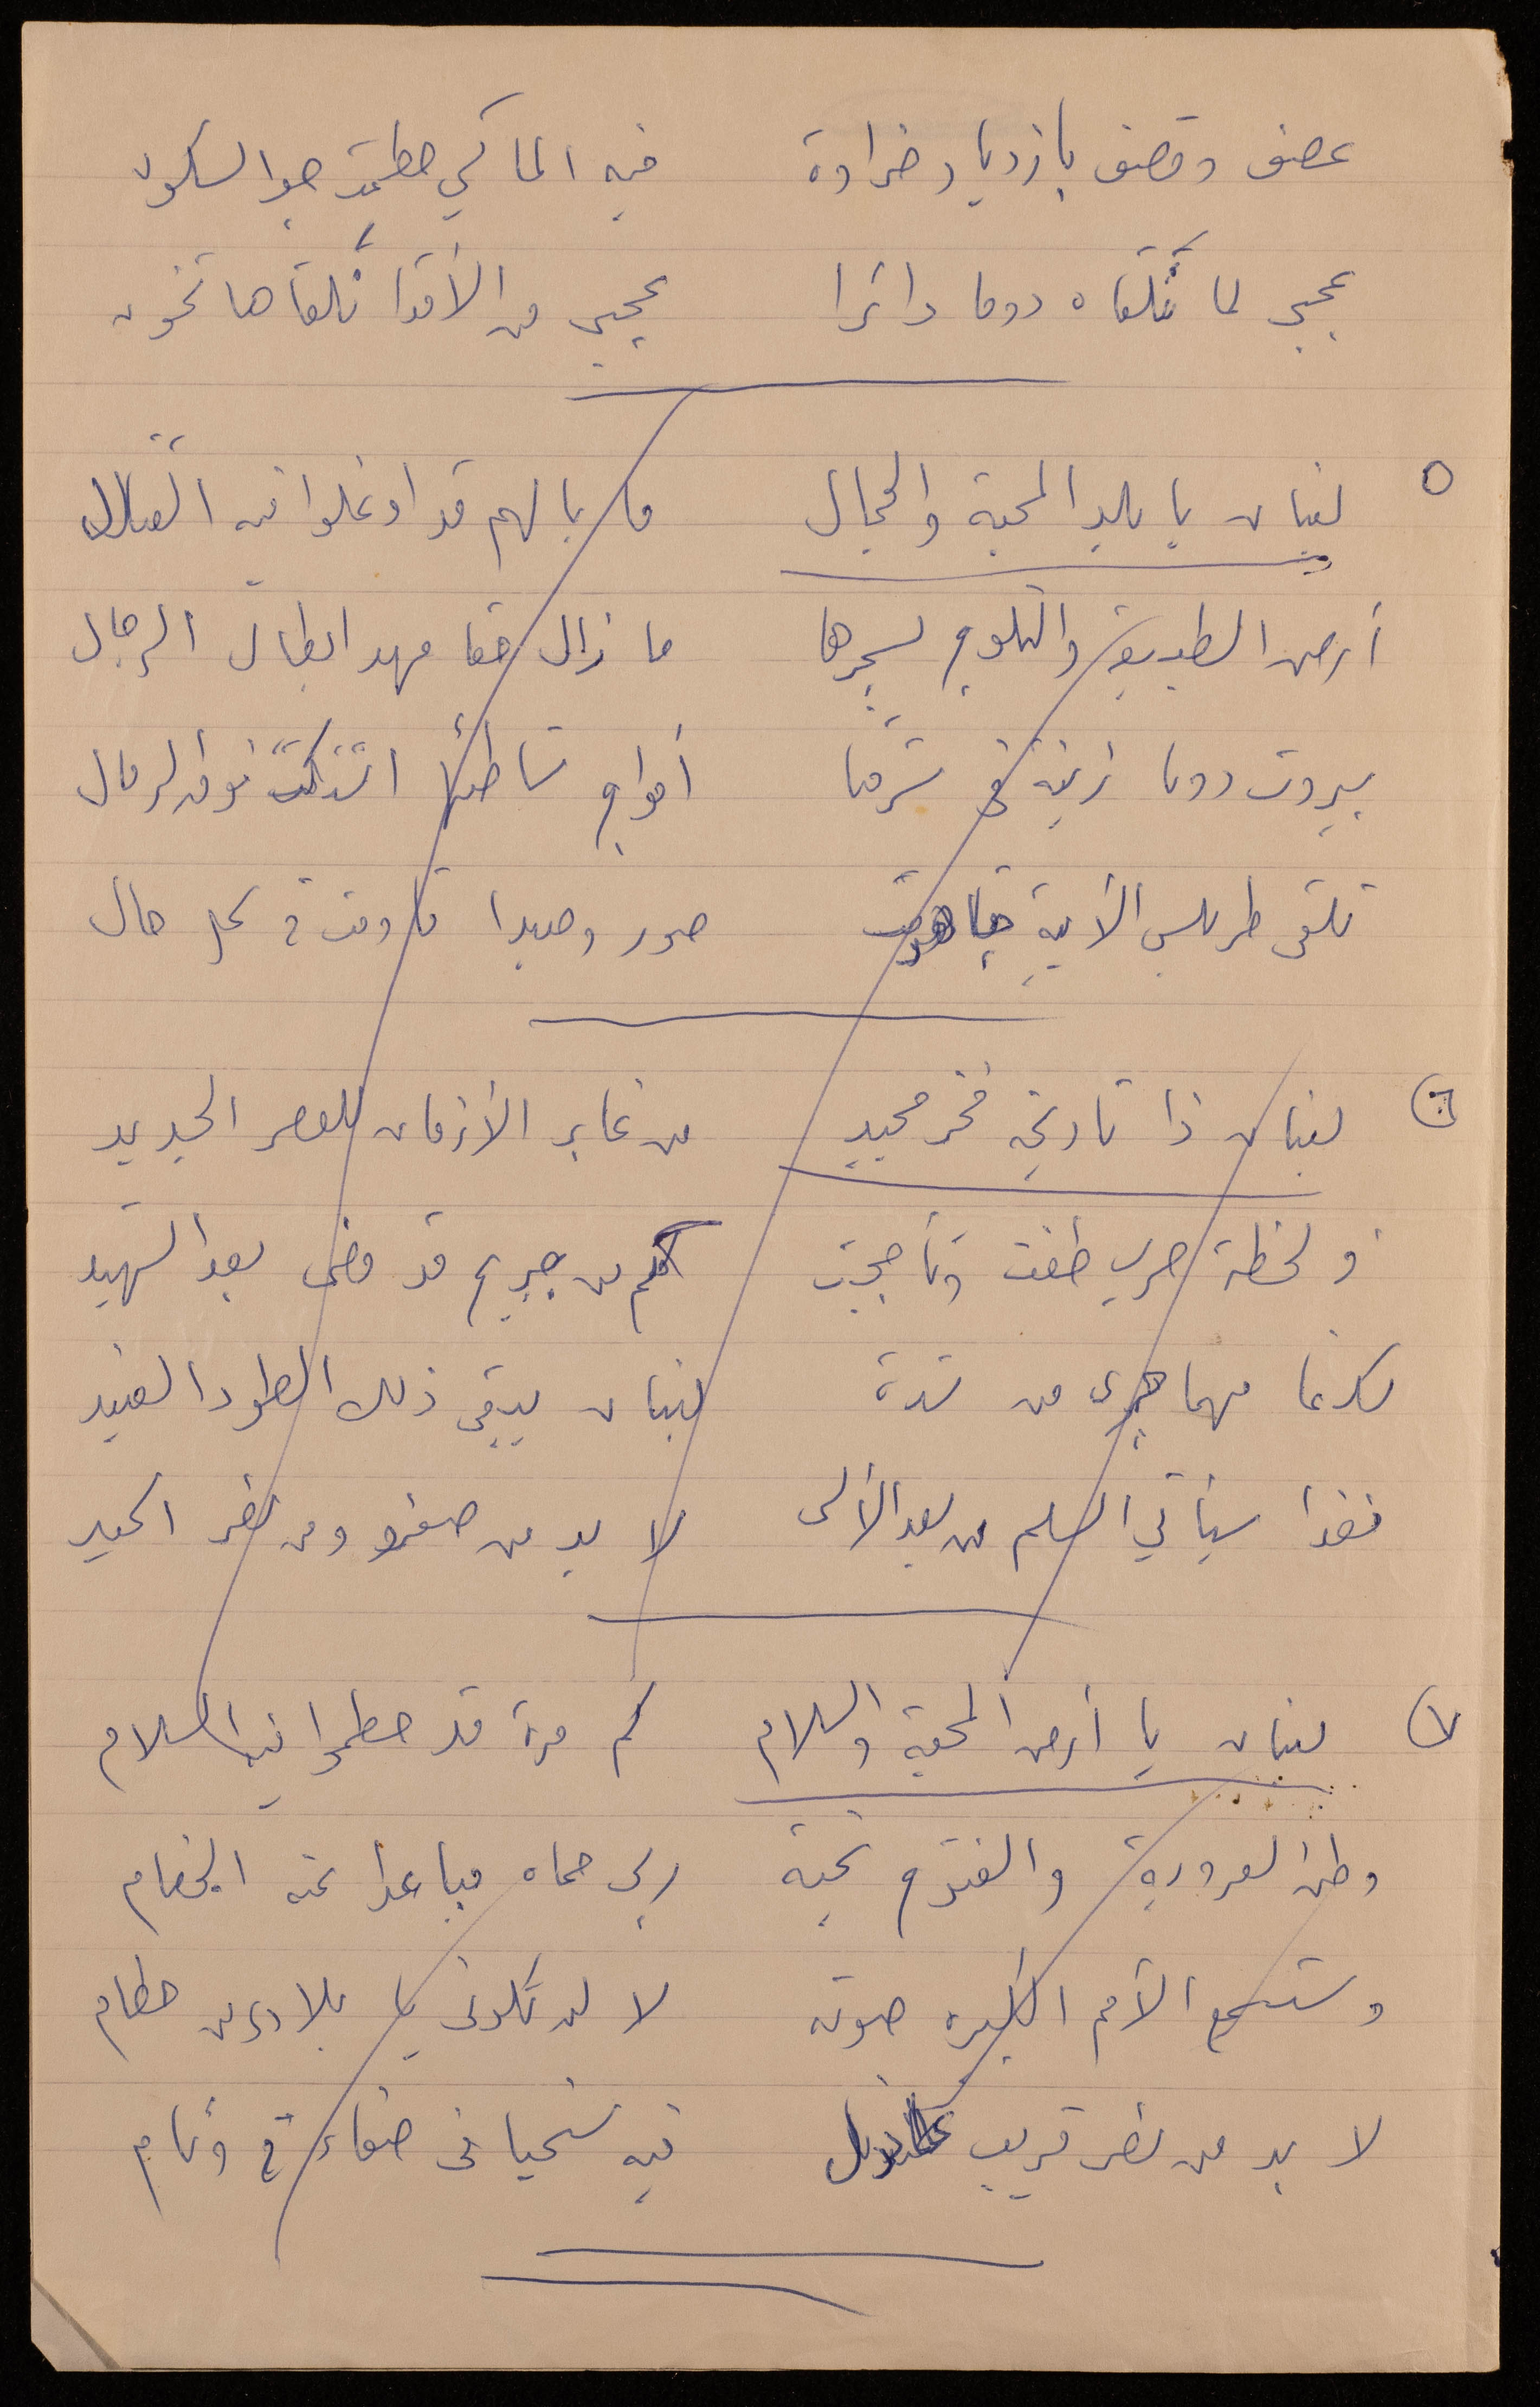 عصف وقصف بازدياد ضراوة فيه المآسي حطمت جو السكون
عجبي لما تلقاه دوما دائرا عجبي من الأقدار تلقاها تخون
٥ لبنان يا بلد المحبة والجمال ما بالهم قد اوغلوا فيه القتال
أرض الطبيعة والثلوج بسحرها ما زال حقا مهد ابطال الرجال
بيروت دوما زينة في شرقنا أمواج شاطئها اشتكت فوق الرمال
تلقى طرابلس الأبية جاهدت صور وصيدا قاومت في كل حال
٦ لبنان ذا تاريخ فخر مجيد من غابر الأزمان للعصر الجديد
في لحظة حرب طغت وتأججت كم من جريح قد مضى بعد الشهيد
لكنما مهما جرى من شدة لبنان يبقى ذلك الطود العنيد
فغدا سيأتي السلم من بعد الألى لا بد من صفو ومن نصر اكيد
٧ لبنان يا أرض المحبة والسلام كم مرة قد حطموا فيه السلام
وطن العروبة والفتوح تحية ربي حماه مباعدا عنه الخصام
وستسمع الأمم الكبيرة صوته لا لن تكوني يا بلادي من حطام
لا بد من نصر قريب فيه سنحيا في صفاء في وئام